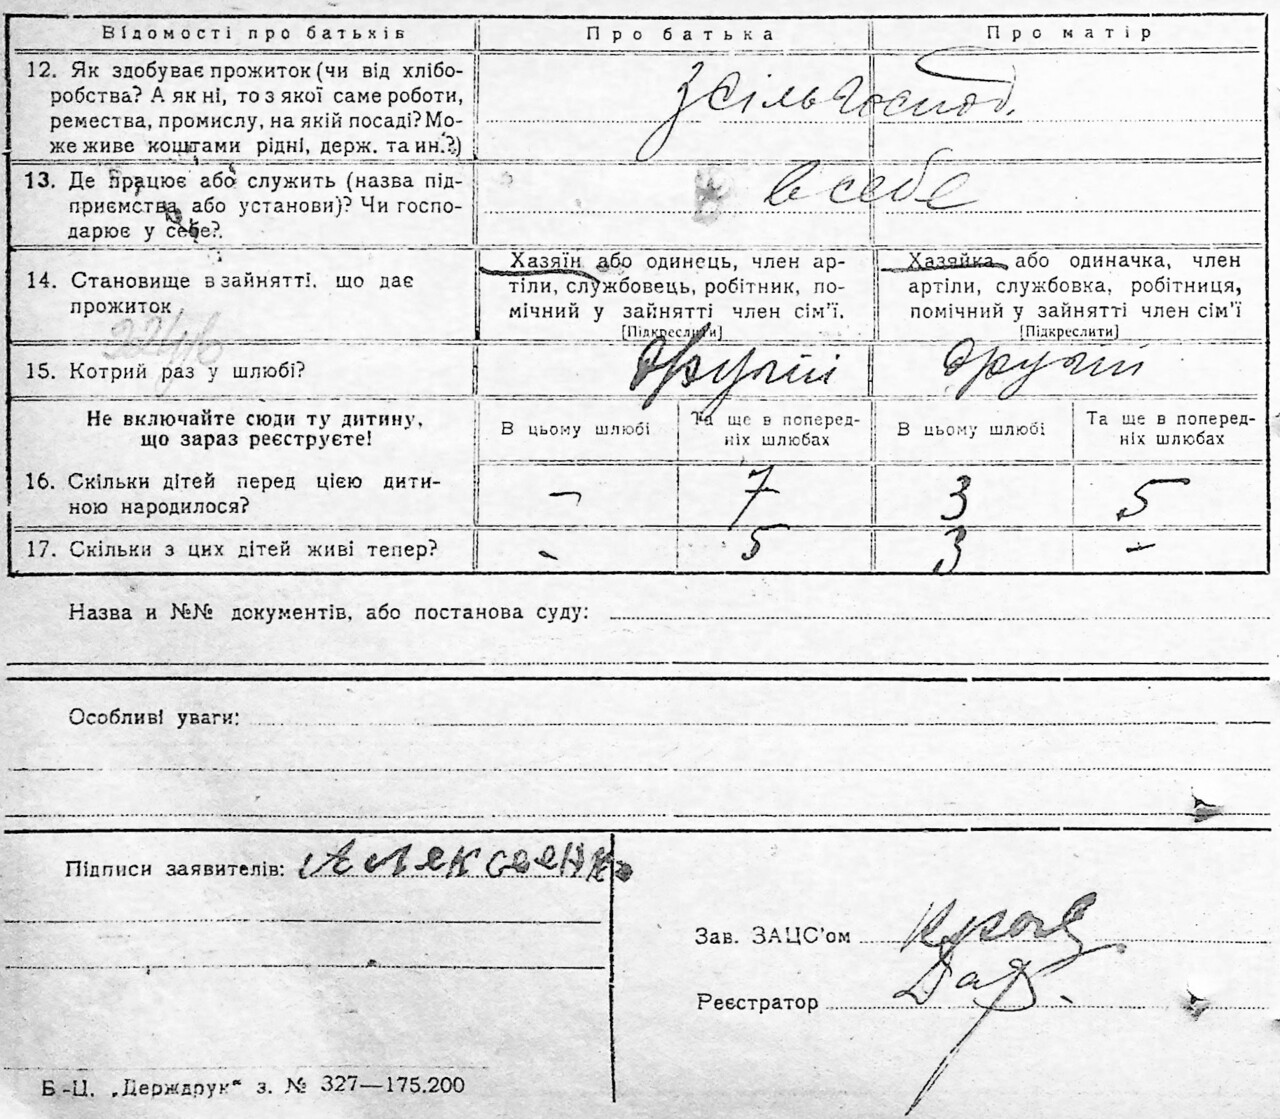 Відомості про батьків Про батька Про матір
12. Як здобуває прожиток (чи від хлібо-
робства? А як ні, то з якої саме роботи,
ремества, промислу, на якій посаді? Мо-
же живе коштами рідні, держ. та ин.?)
З сільгоспод.
13. Де працює або служить (назва під-
приємства або установи)? Чи госпо-
дарює у себе?
в себе
14. Становище в зайнятті, що дає
прожиток
Хазяїн або одинець, член ар-
тіли, службовець, робітник, по-
мічний у зайнятті член сім'ї.
[Підкреслити]
Хазяйка або одиначка, член
артіли, службовка, робітниця,
помічний у зайнятті член сім'ї
[Підкреслити]
15. Котрий раз у шлюбі? другий другий
Не включайте сюди ту дитину,
що зараз реєструєте!
В цьому шлюбі
Та ще в поперед-
ніх шлюбах
В цьому шлюбі
Та ще в поперед-
ніх шлюбах
16. Скільки дітей перед цією дити-
ною народилося?
– 7 3 5
17. Скільки з цих дітей живі тепер? - 5 3 –
Назва и №№ документів, або постанова суду:
Особливі уваги:
Підписи заявителів: Алексеенко
Зав. ЗАЦС'ом
Реєстратор
Б-Ц. „Держдрук“ з. № 327—175.200